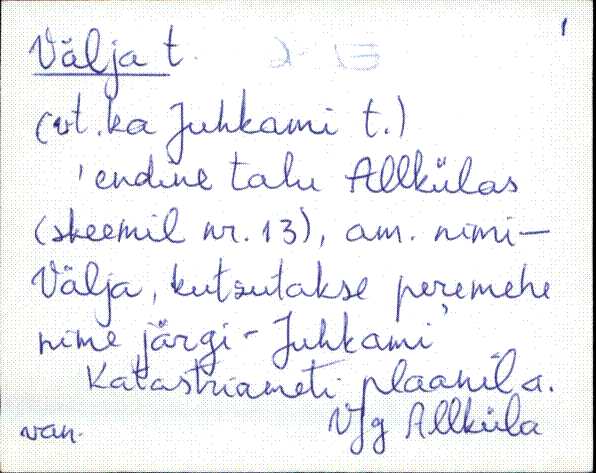 1
Välja t.
(vt. ka Juhkami t.)
'endine talu Allkülas
(skeemil nr. 13), am. nimi—
Välja, kutsutakse peremehe
nime järgi - Juhkami'
Katastriameti plaanil a.
van. V/g Allküla